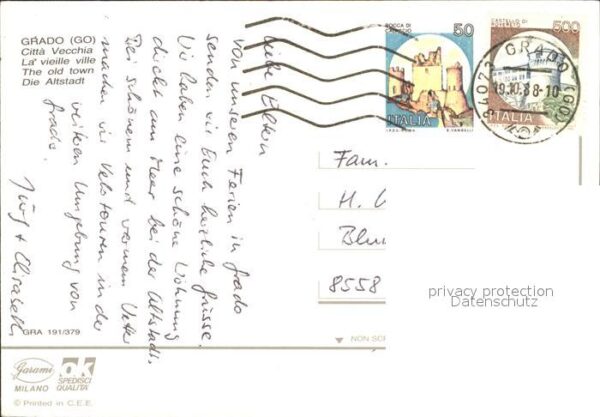 GRADO (GO)
Città Vecchia
La' vieille ville
The old town
Die Altstadt
Liebe Eltern
von unseren Ferien in Grado
senden wir Euch herzliche Grüsse.
Wir haben eine schöne Wohnung
direkt am Meer bei der Altstadt.
Bei schönem und warmem Wetter
machen wir Velotouren in der
weiteren Umgebung von
Grado.
Jürg + Elisabeth
GRA 191/379
Garami
MILANO
ok
SPEDISCI
QUALITÀ
© Printed in C.E.E.
ROCCA DI
50
ITALIA
I.P.Z.S. ROMA
E. VANGELLI
CASTELLO DI
ROVERETO
500
ITALIA
34073 GRADO (GO)
19.10.88-10
Fam.
H.
Blu
8558
NON SC
privacy protection
Datenschutz